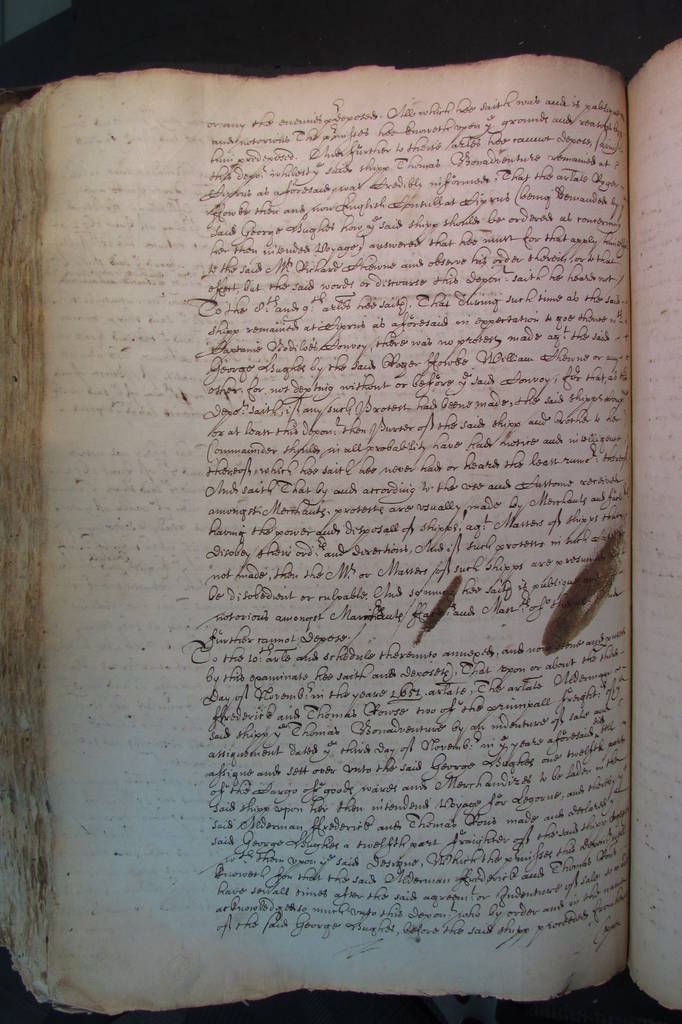 or any the enemies predeposed. All which hee saith was and is publique
and notorious The premisses hee knoweth upon ye grounds and reasons by
him predeposed. And further to theise articles hee cannot depose, saving
this depont whilest ye said shipp Thomas Bonadventure remained at
Ciprus as aforesaid was credibly informed. That the arlate Roger
Fowke then and now English Consull at Ciprus (being demanded by ye
said George Hughes how ye said shipp should be ordered as concerning
her then intended Voyage) answered that hee must for that apply himselfe
to the said Mr Richard and observe his order therein, or to that
effect, but the said words or discourse this depont saith he heard not
To the 8th and 9th arles hee saith, That during such time as the said
shipp remained at Ciprus as aforesaid in expectation to goe thence in
Captaine Bodiloes Convoy, there was no protest made agt the said
George Hughes by the said Roger Fowke William or any
other, for not depting without or before ye said Convoy, for that, as this
depot saith, if any such Protest had beene made, the said shipps company
or at least this depont then Purser of the said shipp and brother to her
Commaunder should in all probability have had notice and intelligence
thereof, which hee saith hee never had or heard the least rumor thereof
And saith That by and according to the use and Custome received
amongst Merchants, protests are usually made by Merchants and
having the power and disposall of shipps, agt Masters of shipps that
disobey their ord and directions, And if such protests in such cases
not made, then the Mr or Masters of such shipps are presumed
be disobedient or culpable. And hee saith is publique and
notorious amongst Marchants and Mastrs of shipps And
further cannot depose.
To the 10th arle and schedule thereunto annexed, and now seene and
by this examinate hee saith and deposeth, That upon or about the third
day of Novembr in the yeare 1651 arlate, The arlate Alderman
Ffrederick and Thomas Rowse two of the prinnipall freightrs of ye
said shipp ye Thomas Bonadventure by an indenture of sale and
assignement dated ye third day of Novembr in ye yeare aforesaid, did sell
assigne and sett over unto the said George Hughes one twelfth part
of the Cargo of goods, wares and Merchandizes to be laden in the
said shipp upon her then intended Voyage for Legorne, and thereby ye
said Alderman Ffrederick and Thomas Rous made and declared ye
said George Hughes a twelfth part fraighter of the said shipp
with them upon ye said Designe, Which the premisses this depont
knoweth for that the said Alderman Ffrederick and Thomas Rous
have severall times after the said agreemt or Indenture of sale so made
acknowledged so much unto this depont who by order and in the name
of the said George Hughes, before the said shipp proceeded
upon